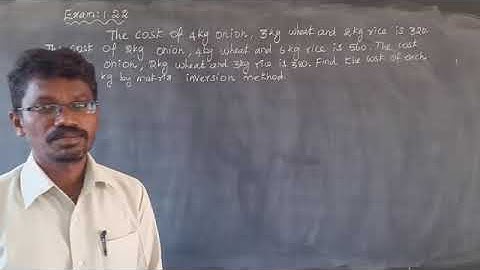 Exam: 1.22
The cost of 4kg onion, 3kg wheat and 2kg rice is 320.
The cost of 2kg onion, 4kg wheat and 6kg rice is 560. The cost
onion, 2kg wheat and 3kg rice is 380. Find the cost of each
kg by matrix inversion method.